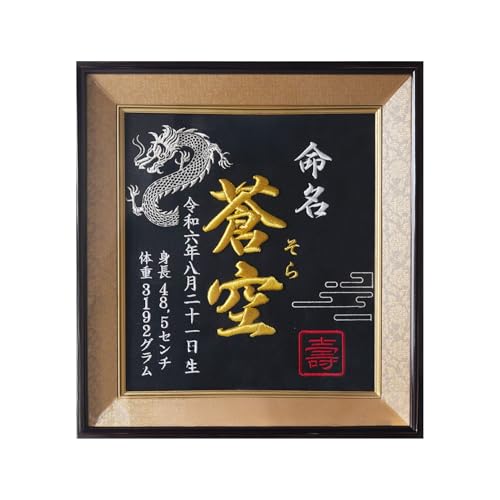 命名
蒼空
そら
令和六年八月二十一日生
身長48,5センチ
体重3192グラム
壽